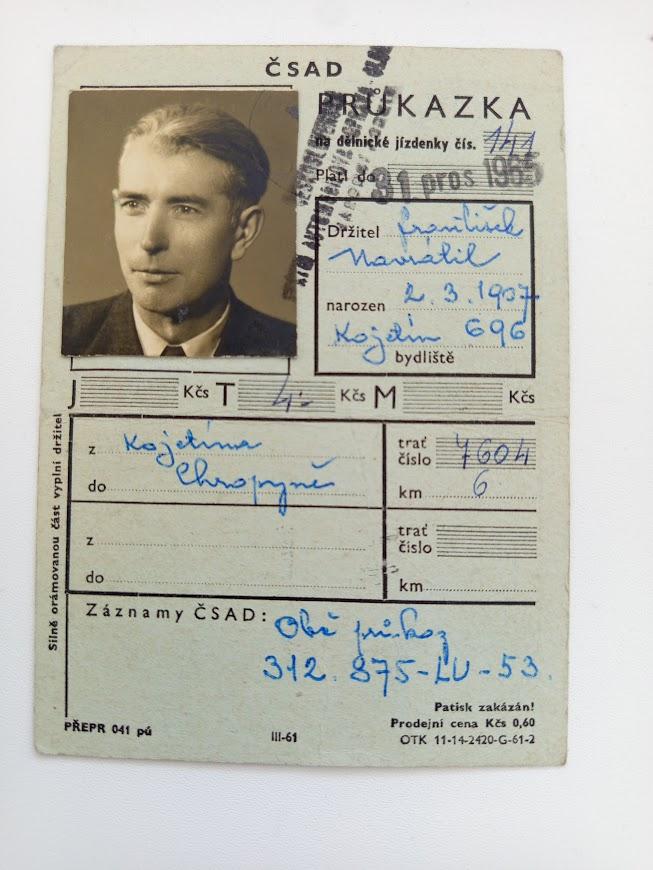 ČSAD
PRŮKAZKA
na dělnické jízdenky čís. 141
Platí do 31 pros 1965
Držitel František
Navrátil
narozen 2.3.1907
Kojetín 696
bydliště
J Kčs T 4.- Kčs M Kčs
Silně orámovanou část vyplní držitel
z Kojetína
do Chropyně
trať
číslo 7604
km 6
z
do
trať
číslo
km
Záznamy ČSAD:
Obč průkaz
312.875-LU-53.
Patisk zakázán!
Prodejní cena Kčs 0,60
PŘEPR 041 pú
III-61
OTK 11-14-2420-G-61-2